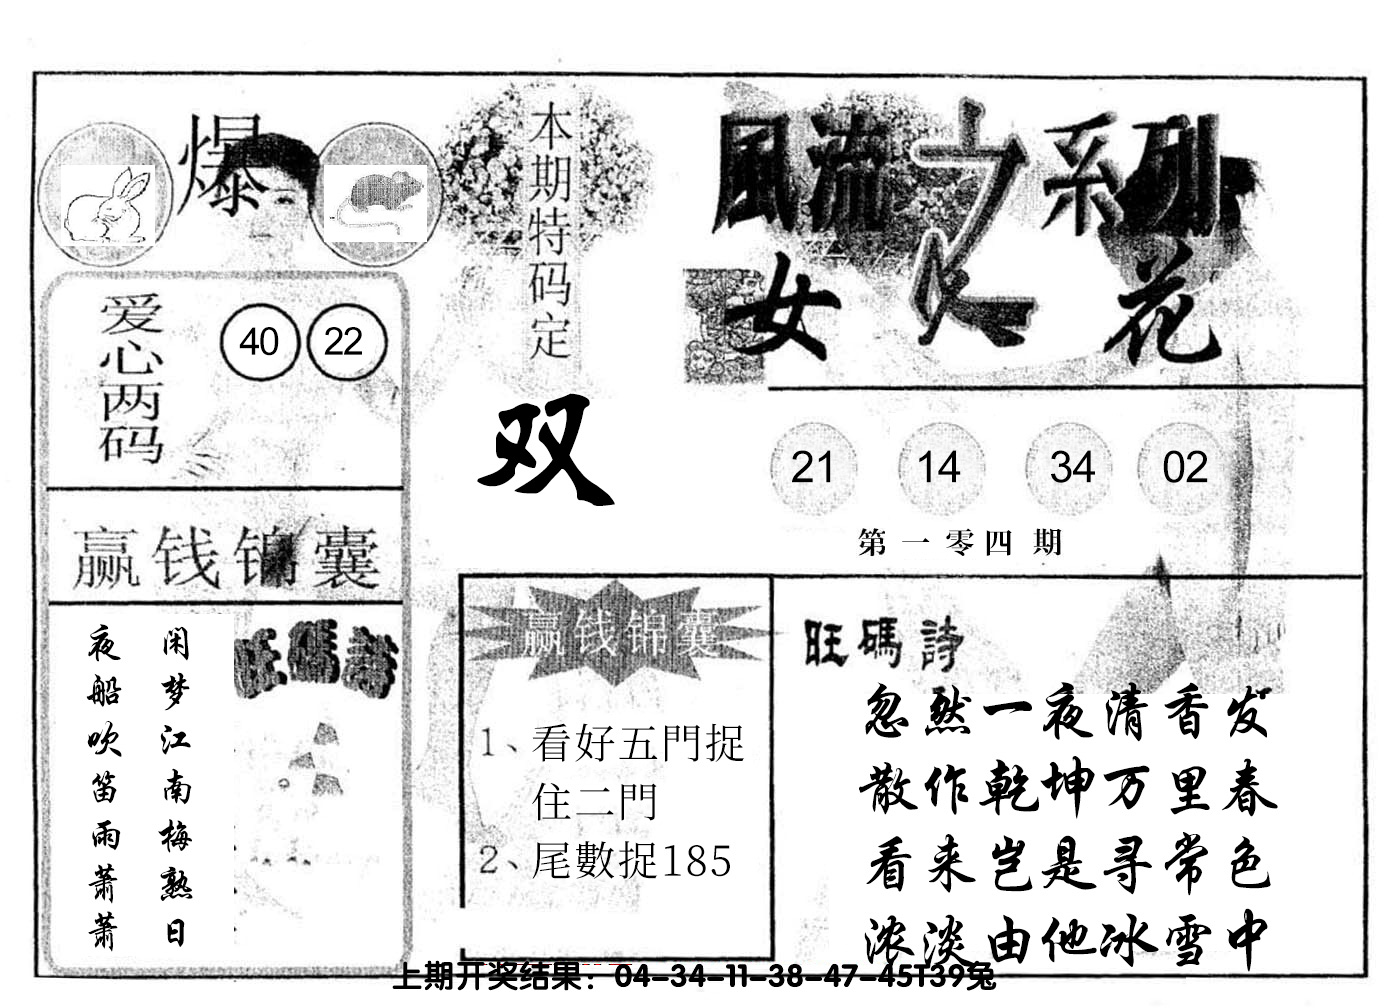 爆
本期特码定
双
風流之系列
女人花
爱心两码
40 22
21 14 34 02
第一零四期
赢钱锦囊
闲梦江南梅熟日
夜船吹笛雨萧萧
旺碼詩
赢钱锦囊
1、看好五門捉
住二門
2、尾數捉185
旺碼詩
忽然一夜清香发
散作乾坤万里春
看来岂是寻常色
浓淡由他冰雪中
上期开奖结果：04-34-11-38-47-45T39兔